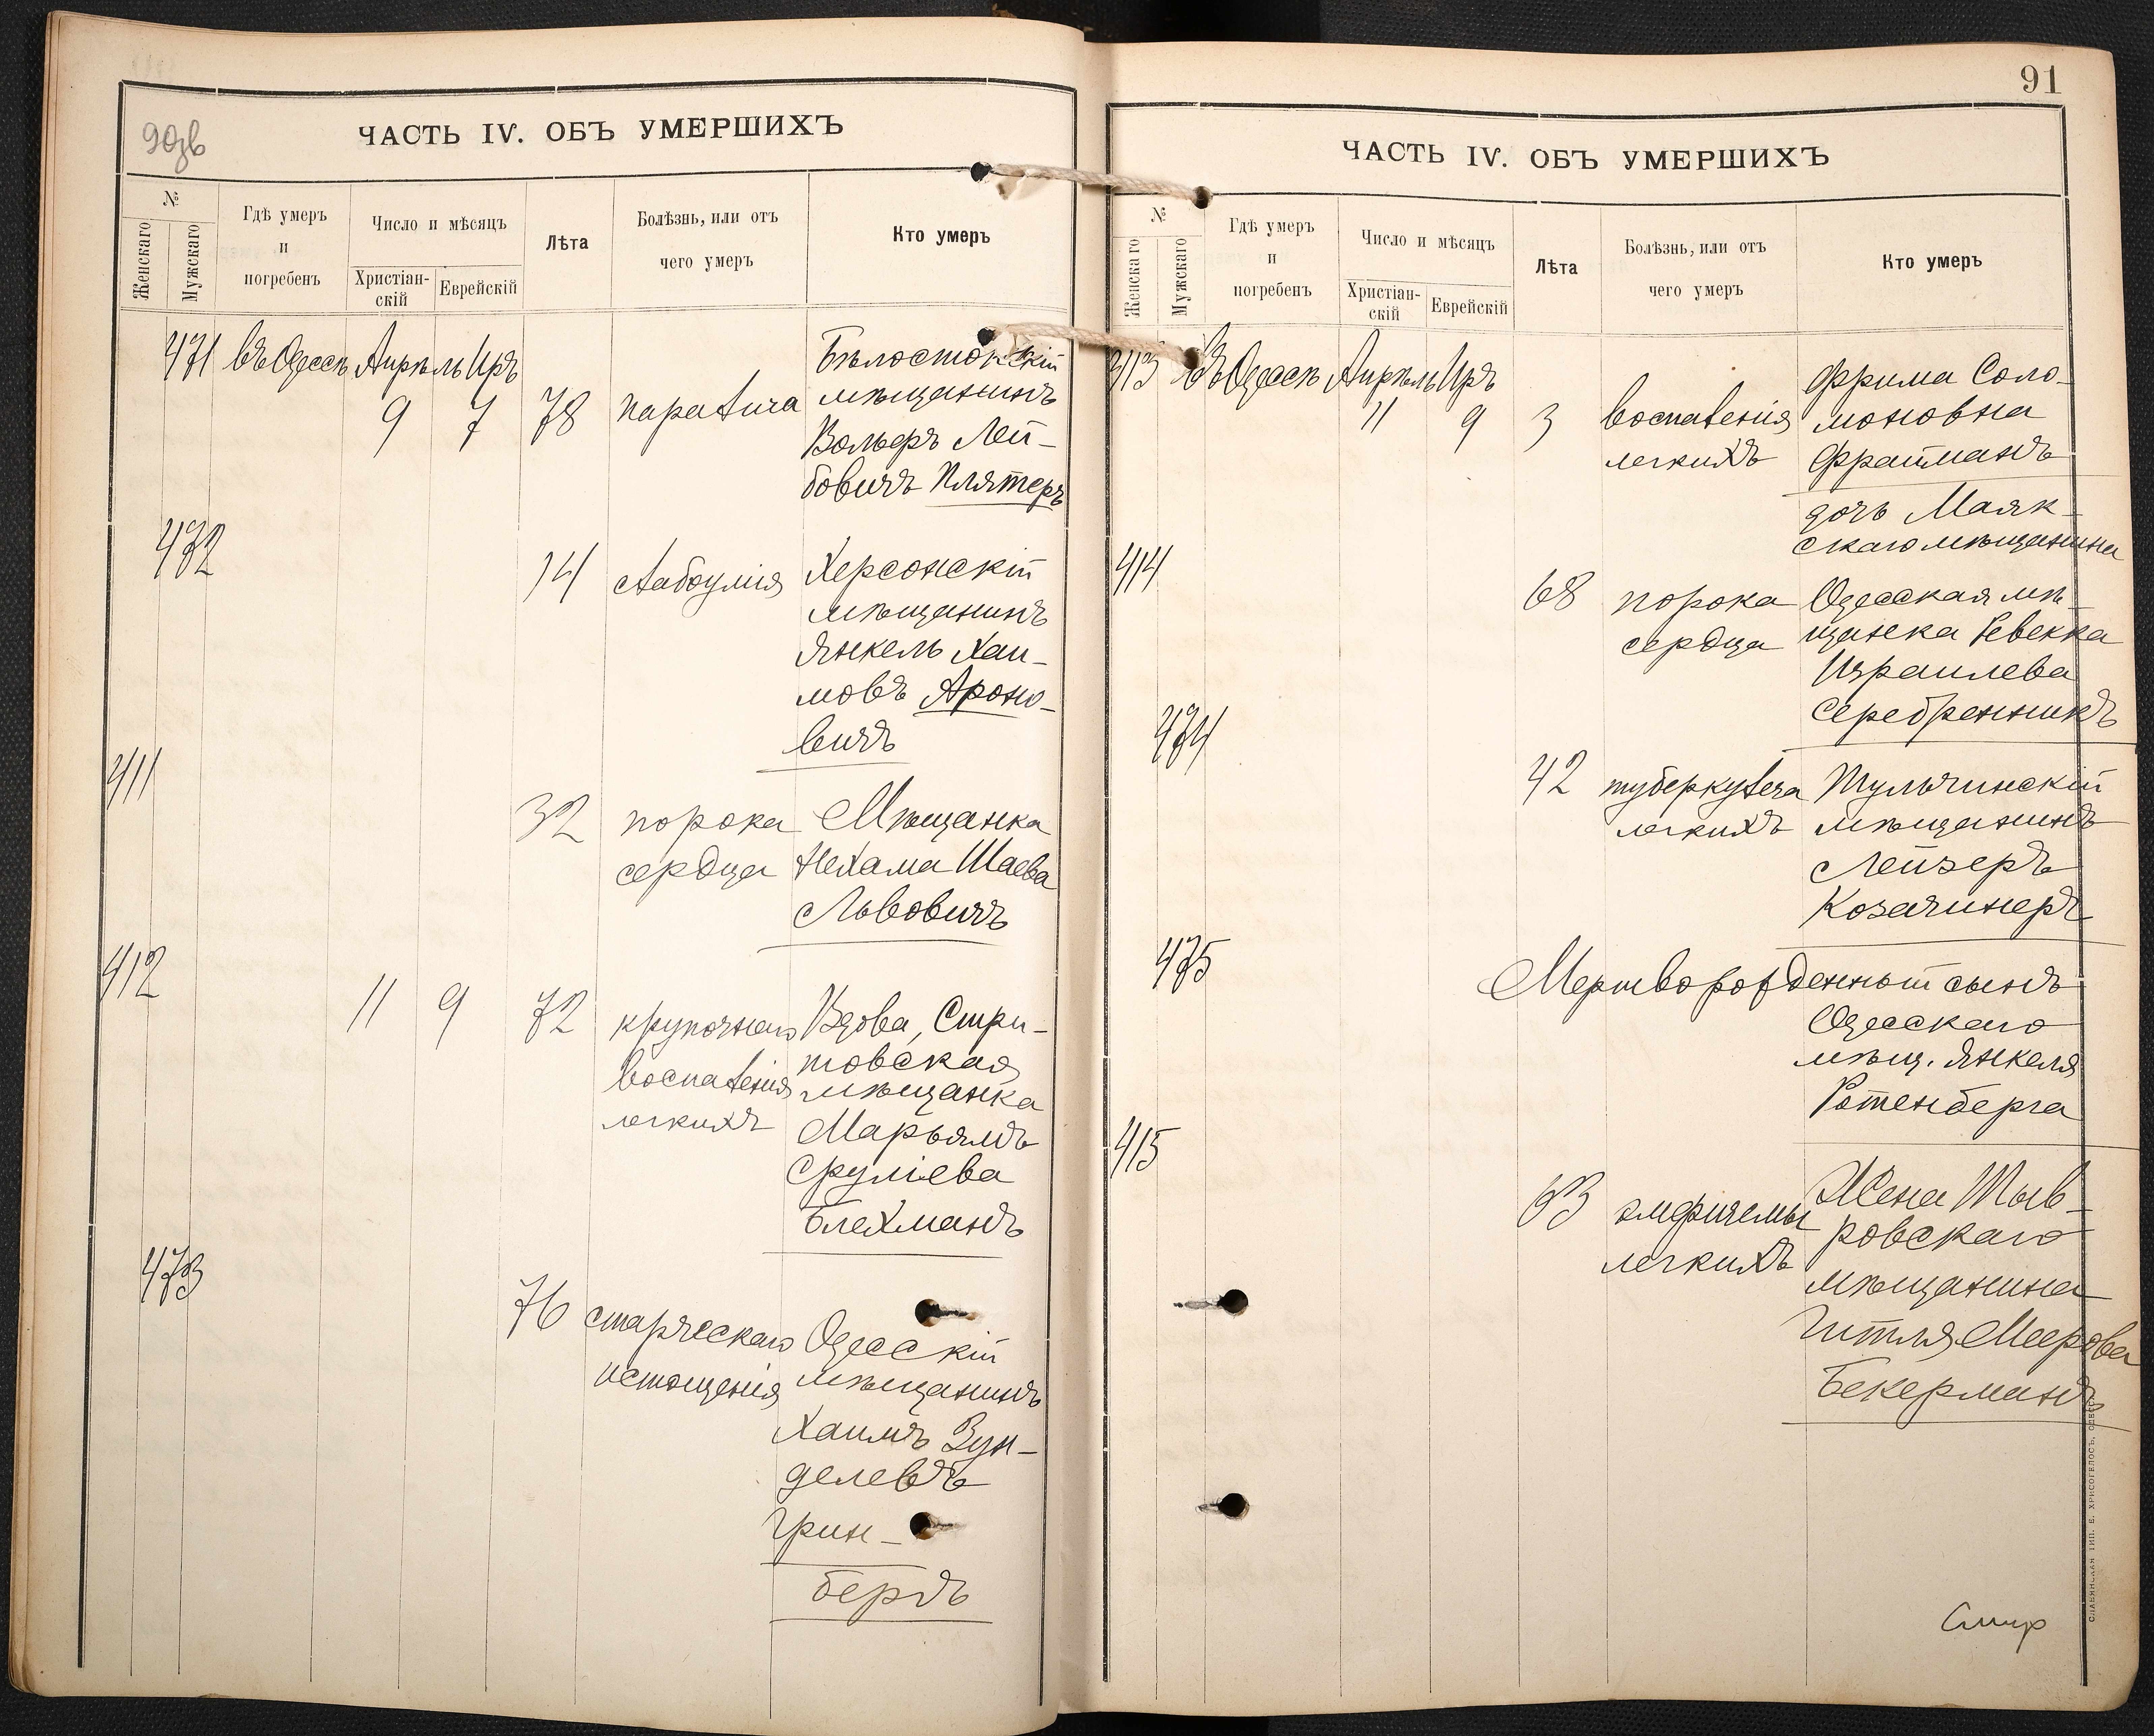 90зв
ЧАСТЬ IV. ОБЪ УМЕРШИХЪ
№
Женскаго
Мужскаго
Гдѣ умеръ
и
погребенъ
Число и мѣсяцъ
Христіан-
скій
Еврейскій
Лѣта
Болѣзнь, или отъ
чего умеръ
Кто умеръ
471 въ Одессѣ Апрѣль Иръ Бѣлостокскій
9 7 78 паралича мѣщанинъ
Вольфъ Лей-
бовичъ Плятеръ
472
14 слабоумія Херсонскій
мѣщанинъ
Янкель Хаи-
мовъ Ароно-
вичъ
411
32 порока Мѣщанка
сердца Нехама Шаева
Львовичъ
412
11 9 72 крупознаго Вдова, Стри-
товская
воспаленія мѣщанка
легкихъ Марьямъ
Срулiева
Блехманъ
473
76 старческаго Одесскій
истощенія мѣщанинъ
Хаимъ Зун-
делевъ
Грин-
бергъ
91
ЧАСТЬ IV. ОБЪ УМЕРШИХЪ
№
Женскаго
Мужскаго
Гдѣ умеръ
и
погребенъ
Число и мѣсяцъ
Христіан-
скій
Еврейскій
Лѣта
Болѣзнь, или отъ
чего умеръ
Кто умеръ
413 Въ Одессѣ Апрѣль Иръ Фрима Соло-
11 9 3 воспаленія моновна
легкихъ Фрайманъ
дочь Маяк-
скаго мѣщанина
414
68 порока Одесская мѣ-
сердца щанка Ревекка
Израилева
Серебренникъ
474
42 туберкулеза Тульчинскій
легкихъ мѣщанинъ
Лейзеръ
Козачинеръ
475
Мертворожденный сынъ
Одесскаго
мѣщ. Янкеля
Ротенберга
415
63 эмфиземы Жена Тыв-
легкихъ ровскаго
мѣщанина
Гитля Меерова
Бекерманъ
СЛАВЯНСКАЯ ТИП. Е. ХРИСОГЕЛОСЪ, ОДЕССА